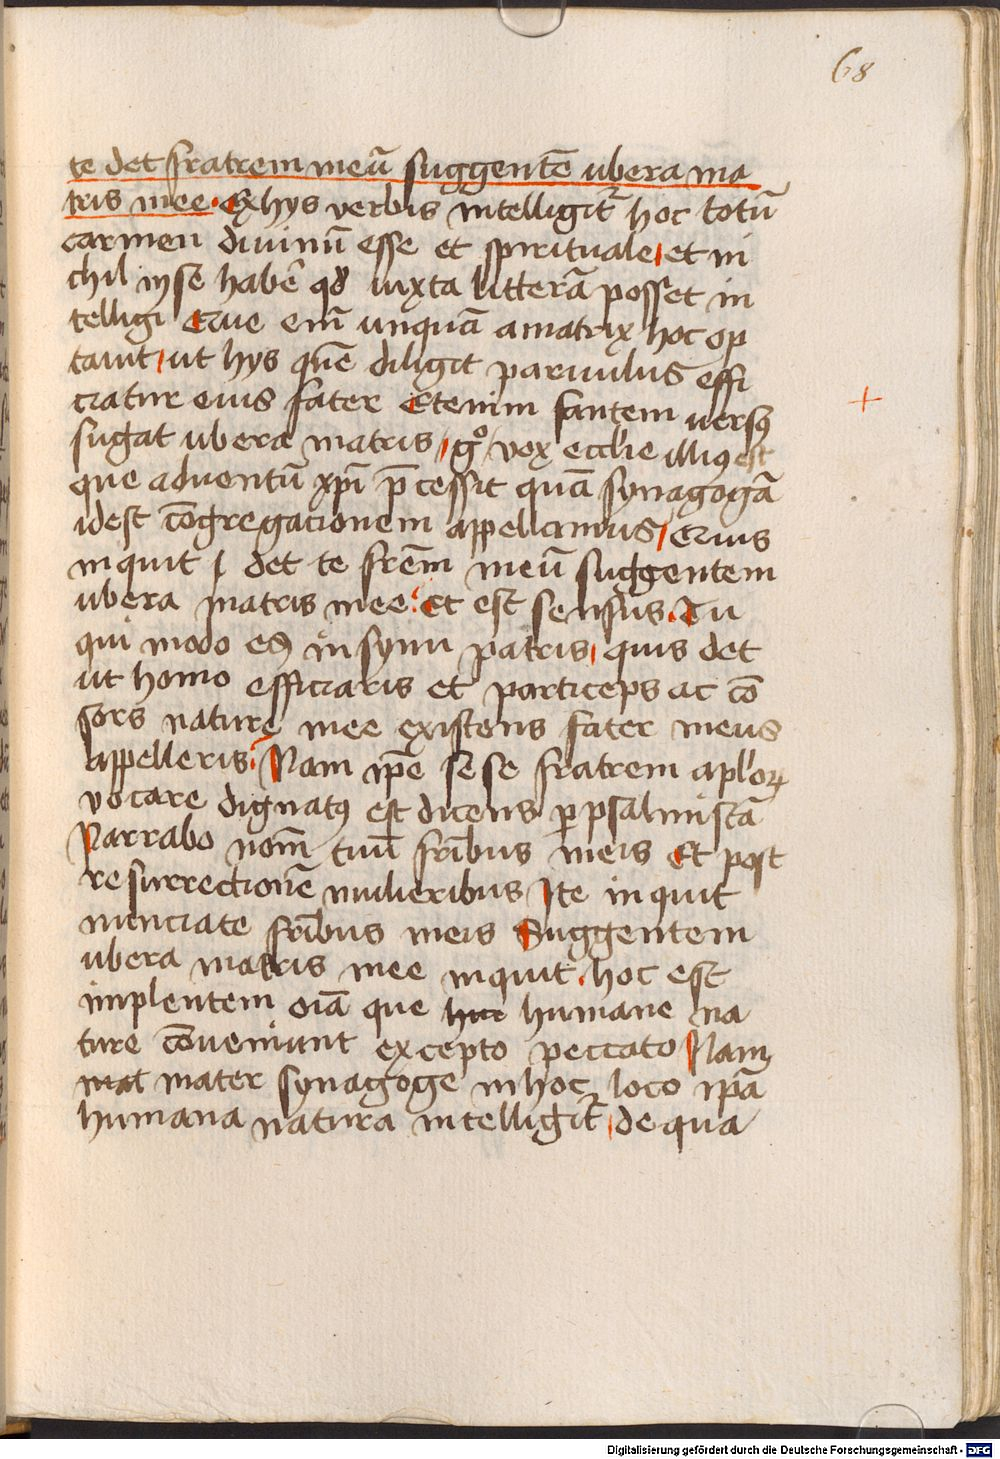 68
te det fratrem meū suggentē ubera ma
tris mee. Ex hys verbis intelligit̄ hoc totū
carmen diuinū esse et spirituale, et ni
chil in se habē̄ qd̄ iuxta litterā posset in
telligi Que em̄ unquā amatrix hoc op
tauit, ut hys quē diligit paruulus effi
ciatur eius frater Etenim fantem uersꝰ
sugat ubera matris, gͦ vox ecclīe illiꝰ est
que aduentū xp̄i p̄cessit quā synagogā
idest cōgregationem appellamus, Quis
inquit det te frēm meū suggentem
ubera matris mee. Et est sensus. Tu
qui modo es in synu patris, quis det
ut homo efficiaris et particeps ac cō
sors nature mee existens frater meus
appelleris. Nam ip̄e sese fratrem apl'oꝝ
vocare dignatꝰ est dicens ꝑ psalmistā
Narrabo nom̄ tuū frībus meis Et post
resurrectionē mulieribus Ite inquit
nunciate frībus meis Suggentem
ubera matris mee inquit. hoc est
implentem oīa que huc humane na
ture cōueniunt excepto peccato Nam
mat mater synagoge in hoc loco ip̄a
humana natura intelligit̄, de qua
Digitalisierung gefördert durch die Deutsche Forschungsgemeinschaft - DFG